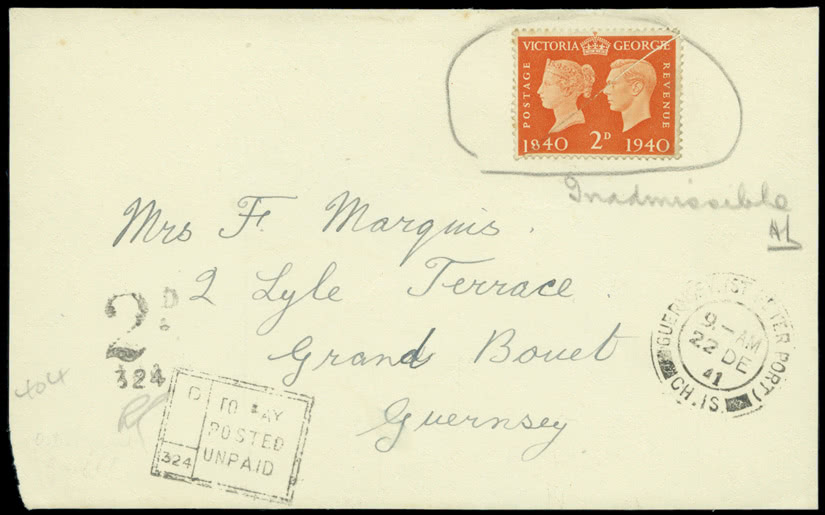 VICTORIA GEORGE
POSTAGE
REVENUE
1840 2D 1940
Inadmissible
AL
Mrs F. Marquis.
2 Lyle Terrace.
Grand Bouet
Guernsey
2D
324
404
TO PAY
POSTED
UNPAID
D
324
GUERNSEY (ST PETER PORT)
9 - AM
22 DE
41
CH. IS.